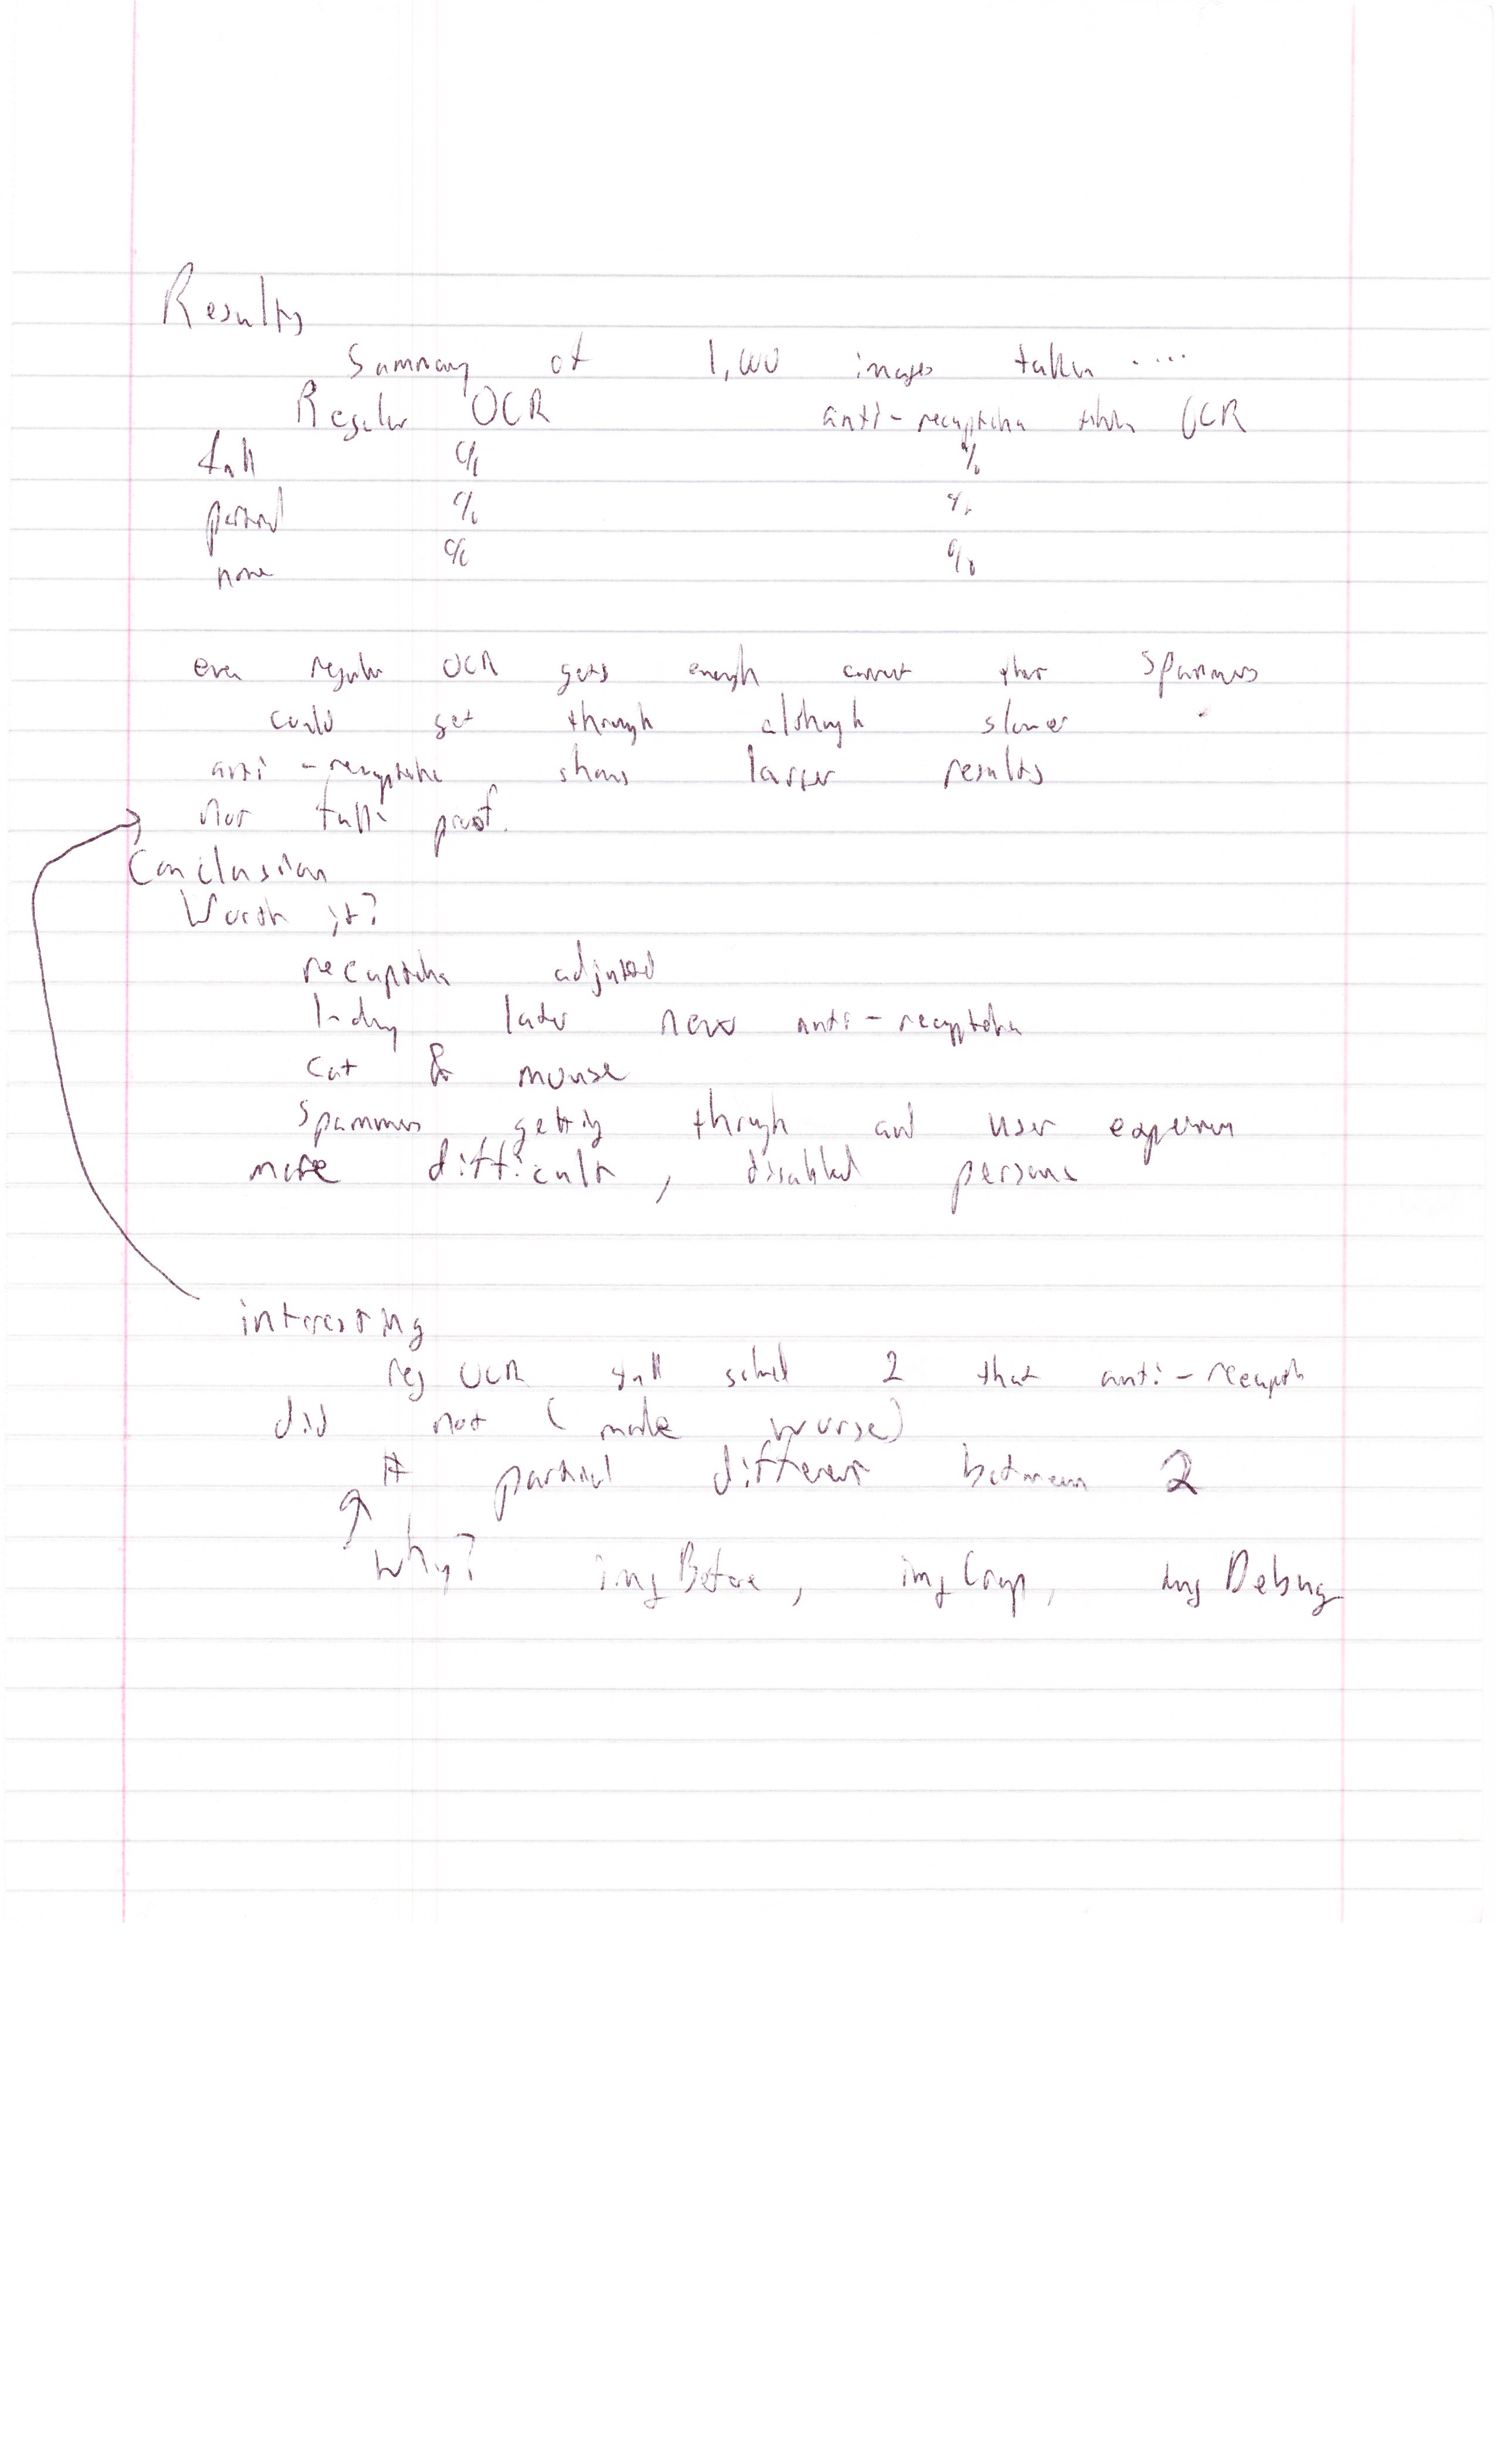 Results
Summary of 1,000 images taken ....
Regular OCR anti-recaptcha then OCR
full % %
partial % %
none % %
even regular OCR gets enough correct that spammers
could get through although slower
anti-recaptcha shows larger results
not full proof.
Conclusion
Worth it?
recaptcha adjusted
1-day later new anti-recaptcha
cat & mouse
spammers getting through and user experience
more difficult, disabled persons
interesting
reg OCR still solved 2 that anti-recaptch
did not (made worse)
# partial different between 2
why? imgBefore, imgCrop, imgDebug